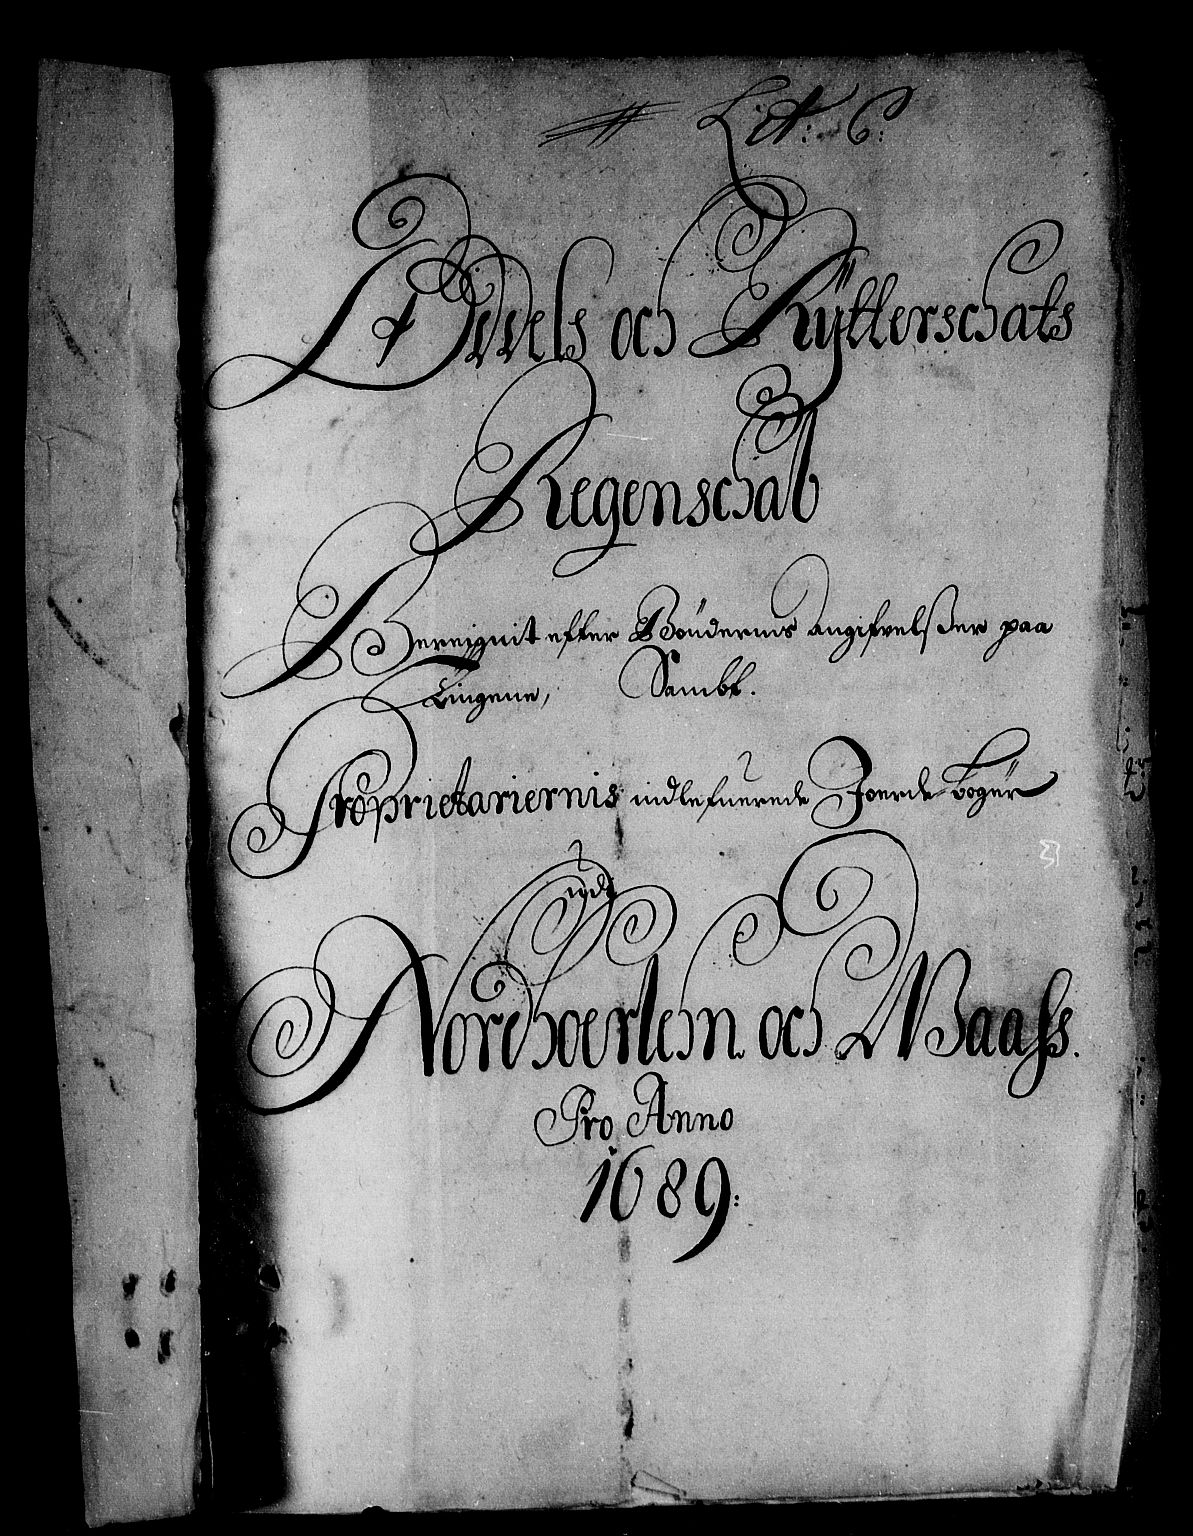 Lit: C:
Odels och Rÿtterschats
Regenschab
Bereignit efter Böndernis angifvelsßer paa
Tingene, Sambt.
Proprietariernis indlefuerede Joerde bogür
udj
Nordhoerlehn och Waass.
Pro Anno
1689: